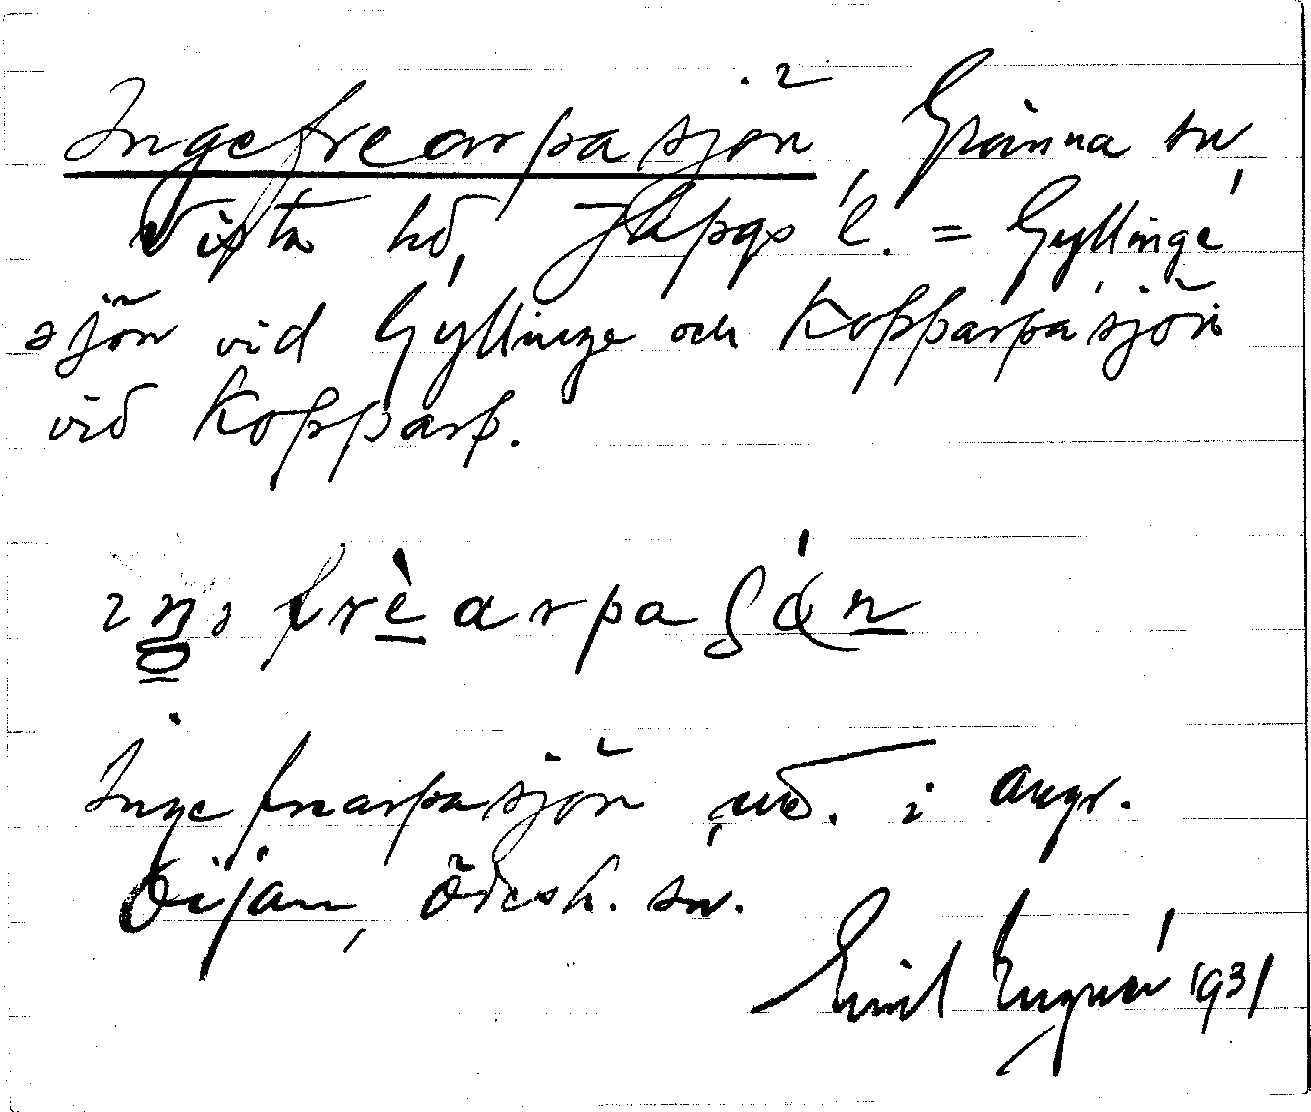 Ingefrearpasjön, Gränna sn,
Vista hd, Jkpgs l. = Gyllinge
sjön vid Gyllinge och Kopparpasjön
vid Kopparp.
Ingefrearpasjön, i angr.
Öijan, Ödesh. sn.
Emil 1931